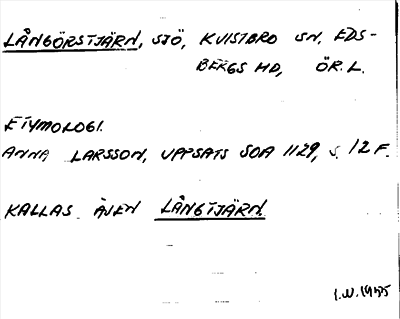 LÅNGÖRSTJÄRN, SJÖ, KVISTBRO SN, EDS-
BERGS HD, ÖR. L.
ETYMOLOGI.
ANNA LARSSON, UPPSATS SOA 1129, S. 12 F.
KALLAS ÄVEN LÅNGTJÄRN.
I.W. 1975